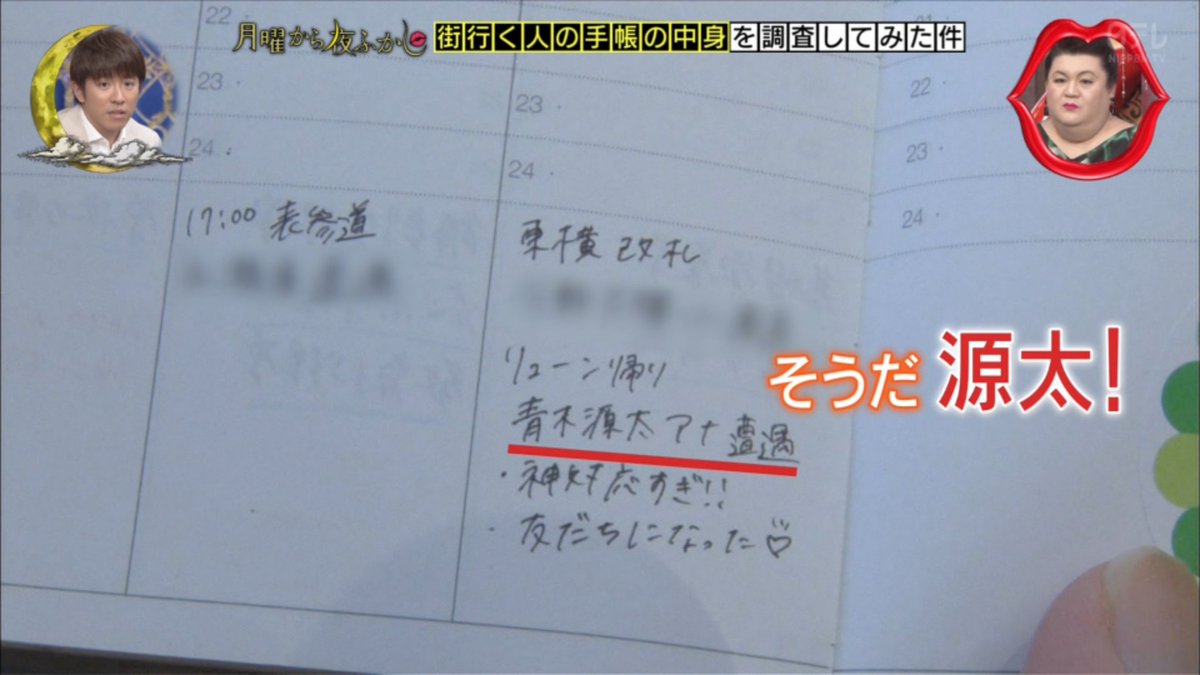 月曜から夜ふかし
街行く人の手帳の中身を調査してみた件
日テレ
NIPPON TV
22
23
24
17:00 表参道
23
24
東横 改札
リューン帰り
青木源太アナ遭遇
・神対応すぎ!!
・友だちになった♡
22
23
24
そうだ 源太!